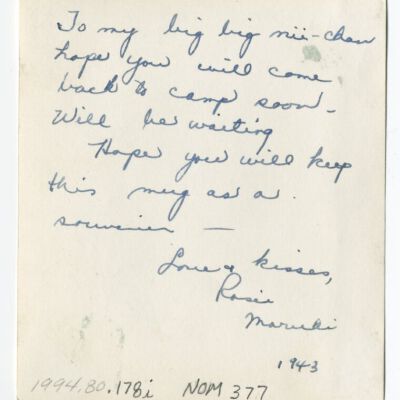 To my big big nii-chan
hope you will come
back to camp soon -
Will be waiting
Hope you will keep
this mug as a
souvenier —
Love & kisses,
Rosie
Maruki
1943
1994.80.178i NOM 377